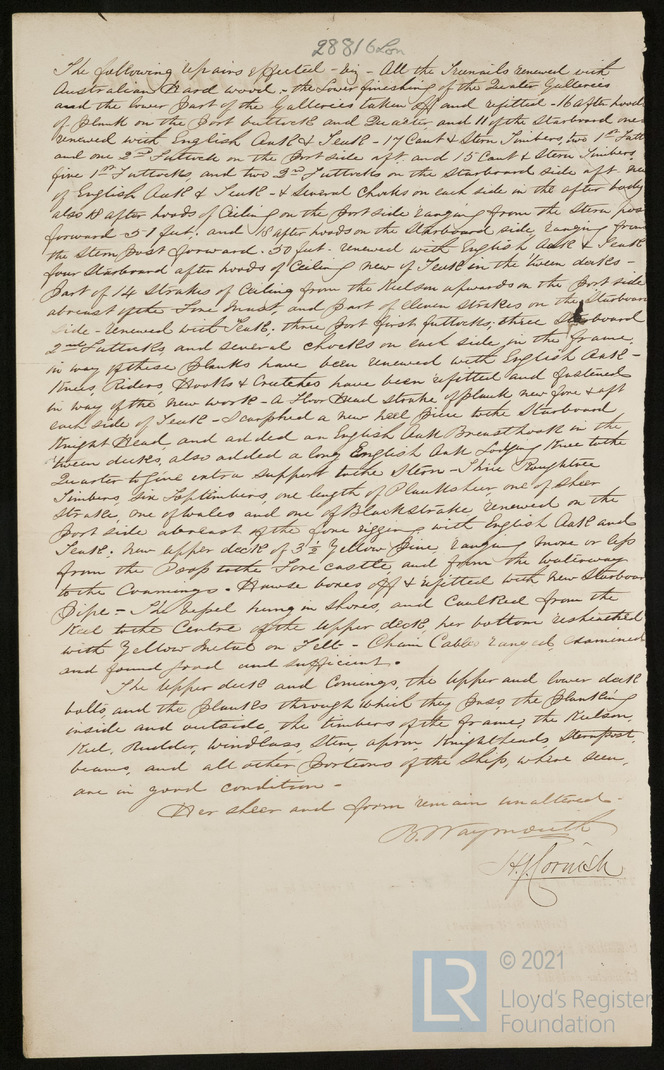 28816 Lon
The following repairs effected - viz - All the Treenails renewed with
Australian Hard wood - the Lower finishing of the Quarter Galleries
and the lower part of the Galleries taken off and refitted - 16 after hoods
of plank on the Port buttock and Quarter and 11 of the Starboard one
renewed with English Oak & Teak - 17 Cant & Stern Timbers, two 1st Futt
and one 2nd Futtock on the Port side aft. and 15 Cant & Stern Timbers
five 1st Futtocks, and two 2nd Futtocks on the Starboard side aft. new
of English Oak & Teak - & several Chocks on each side in the after body
also 18 after hoods of Ceiling on the Port side ranging from the Stern pos
forward 51 feet. and 18 after hoods on the Starboard side, ranging from
the Stern post forward. 50 feet. renewed with English Oak & Teak
four Starboard after hoods of Ceiling new of Teak in the 'tween decks -
Part of 14 Strakes of Ceiling from the Keelson upwards on the Port side
abreast of the Fore Mast, and part of Eleven Strakes on the Starboar
side - renewed with Teak. three Port first futtocks, three Starboard
2nd Futtocks and several chocks on each side in the frame,
in way of these planks have been renewed with English Oak -
Knees, Riders, Hooks & Crutches have been refitted and fastened
in way of the new work - a Floor Head strake of plank new fore & aft
each side of Teak - Scarphed a new heel piece to the Starboard
Knight Head and added an English Oak Breasthook in the
'tween decks, also added a long English Oak Lodging Knee to the
Quarter to give extra support to the Stern - Three Roughtree
Timbers, Six Toptimbers, one length of Planksheer, one of sheer
strake, one of wales and one of Blackstrake renewed on the
Port side abreast of the fore rigging with English Oak and
Teak. New upper deck of 3½ Yellow Pine, ranging more or less
from the Poop to the Forecastle, and from the Waterway
to the Coamings. Hawse bones off & refitted with new Starboar
Pipe - The Vessel hung in shores, and Caulked from the
Keel to the Centre of the upper deck, her bottom resheathed
with Yellow Metal on Felt - Chain Cables ranged, examined
and found good and sufficient.
The upper deck and Comings, the upper and lower deck
bolts, and the planks through which they pass, the planking
inside and outside, the timbers of the frame, the Keelson,
Keel, Rudder, Windlass, Stem, apron, Knightheads, Sternpost,
beams, and all other portions of the Ship, where seen,
are in good condition -
Her sheer and form remain unaltered.
B. Waymouth
H.J. Cornish
LR
© 2021
Lloyd's Register
Foundation